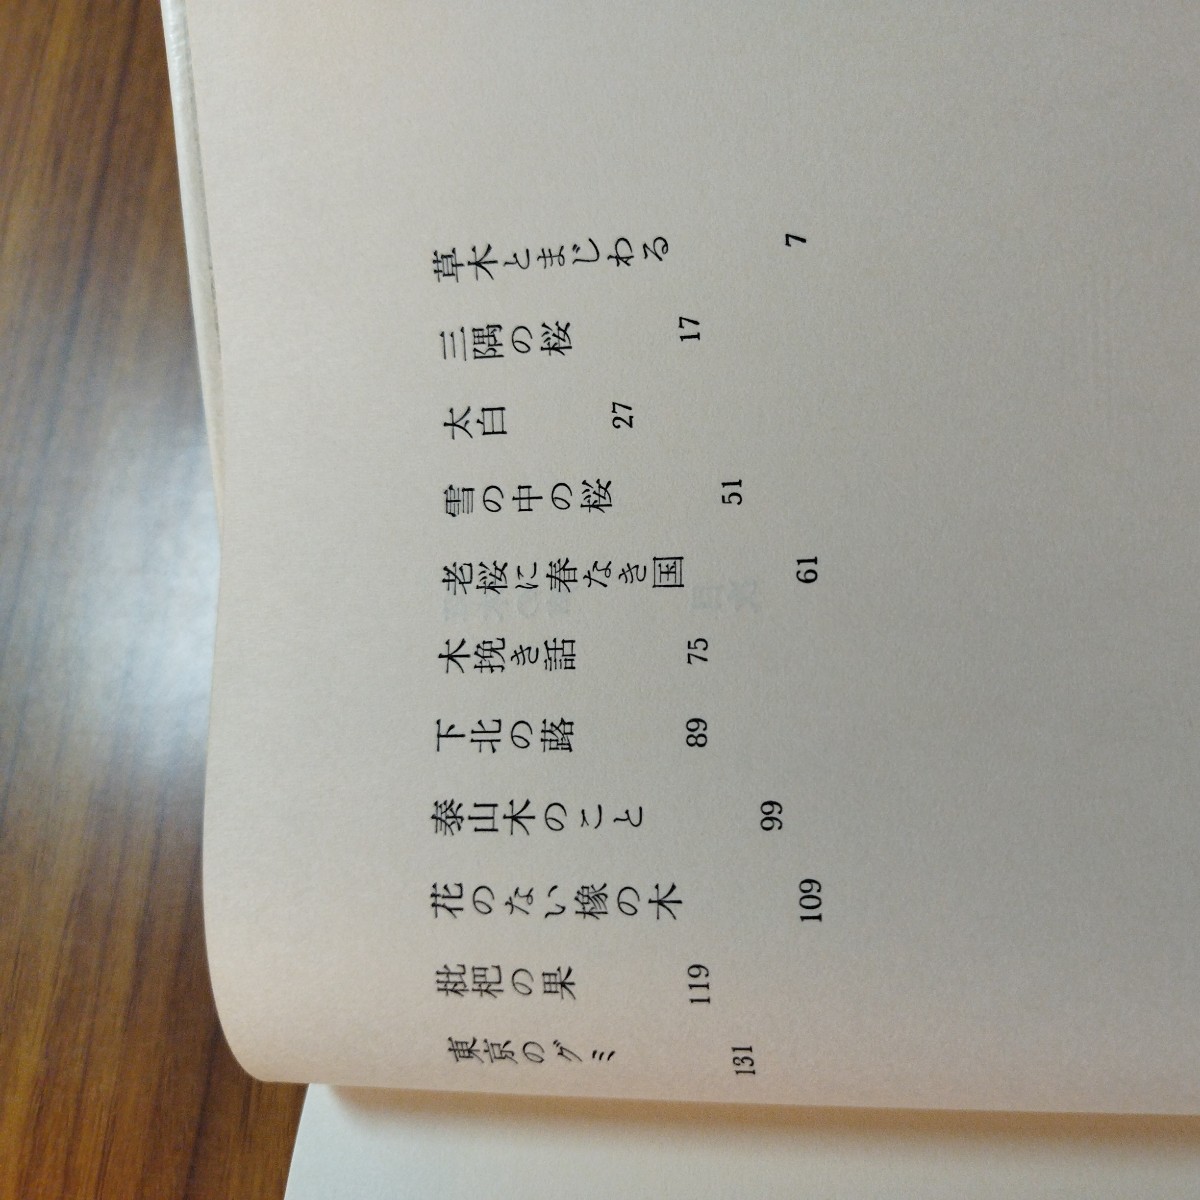 草木とまじわる 7
三隅の桜 17
太白 27
雪の中の桜 51
老桜に春なき国 61
木挽き話 75
下北の蕗 89
泰山木のこと 99
花のない橡の木 109
枇杷の果 119
東京のグミ 131